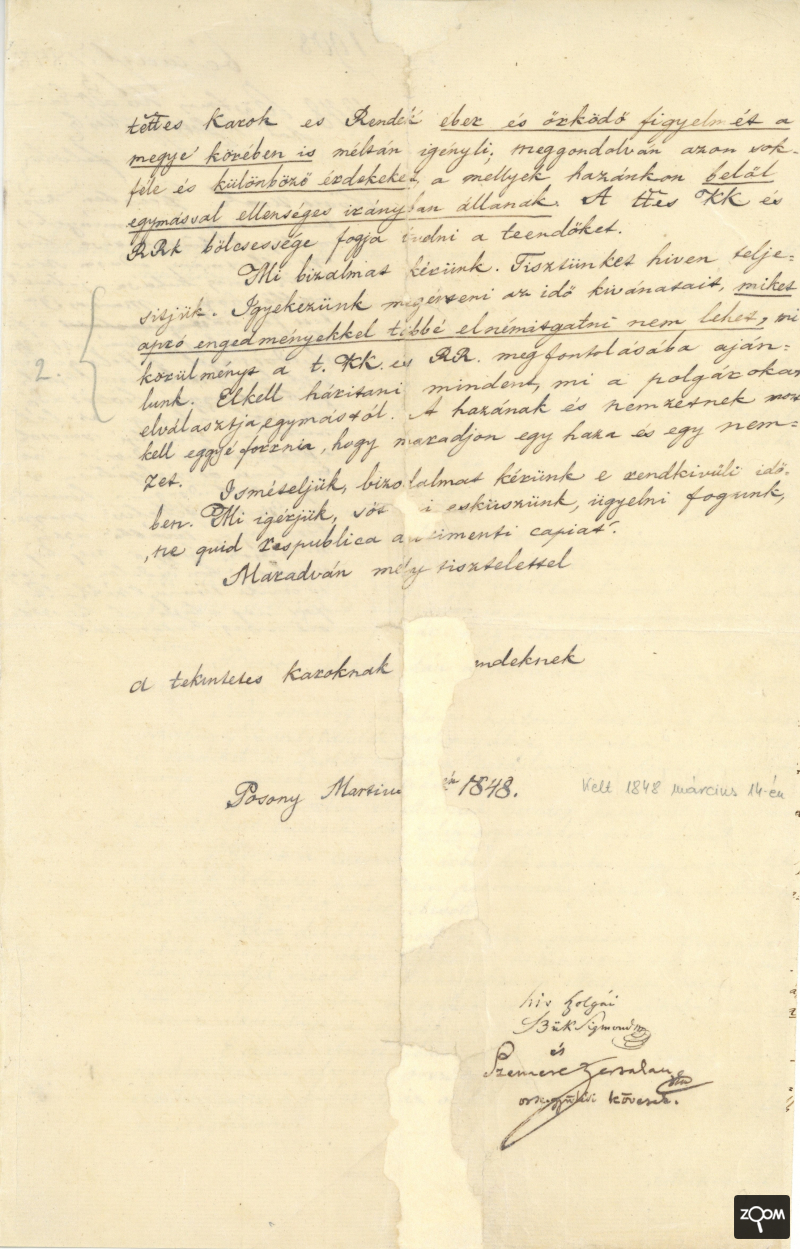 tettes Karok es Rendek éber és őrködő figyelmét a
megye körében is méltán igényli; meggondolván azon sok-
féle és különböző érdekeket, a mellyek hazánkon belől
egymással ellenséges irányban állanak. A ttes KK és
RRk bölcsessége fogja tudni a teendőket.
Mi bizalmat kérünk. Tisztünket hiven telje=
sitjük. Igyekezünk megérteni az idő kivánatait, miket
apró engedményekkel többé elnémitgatni nem lehet, mi
körülményt a t. KK. es RR. megfontolásába aján=
2. lunk. Elkell háritani mindent, mi a polgárokat
elválasztja egymástól. A hazának és nemzetnek most
kell eggyé forrnia, hogy maradjon egy haza és egy nem=
zet.
Ismételjük, bizodalmat kérünk e rendkivüli idő-
ben. Mi igérjük, sőt mi esküszünk, ügyelni fogunk,
„ne quid respublica detrimenti capiat".
Maradván mély tisztelettel
a tekintetes Karoknak ndeknek
Posony Martiu én 1848.
Kelt 1848 március 14-én
hiv szolgái
Bük Sigmond
és
Szemere Bertalan
országgyűlési követek.
ZOOM